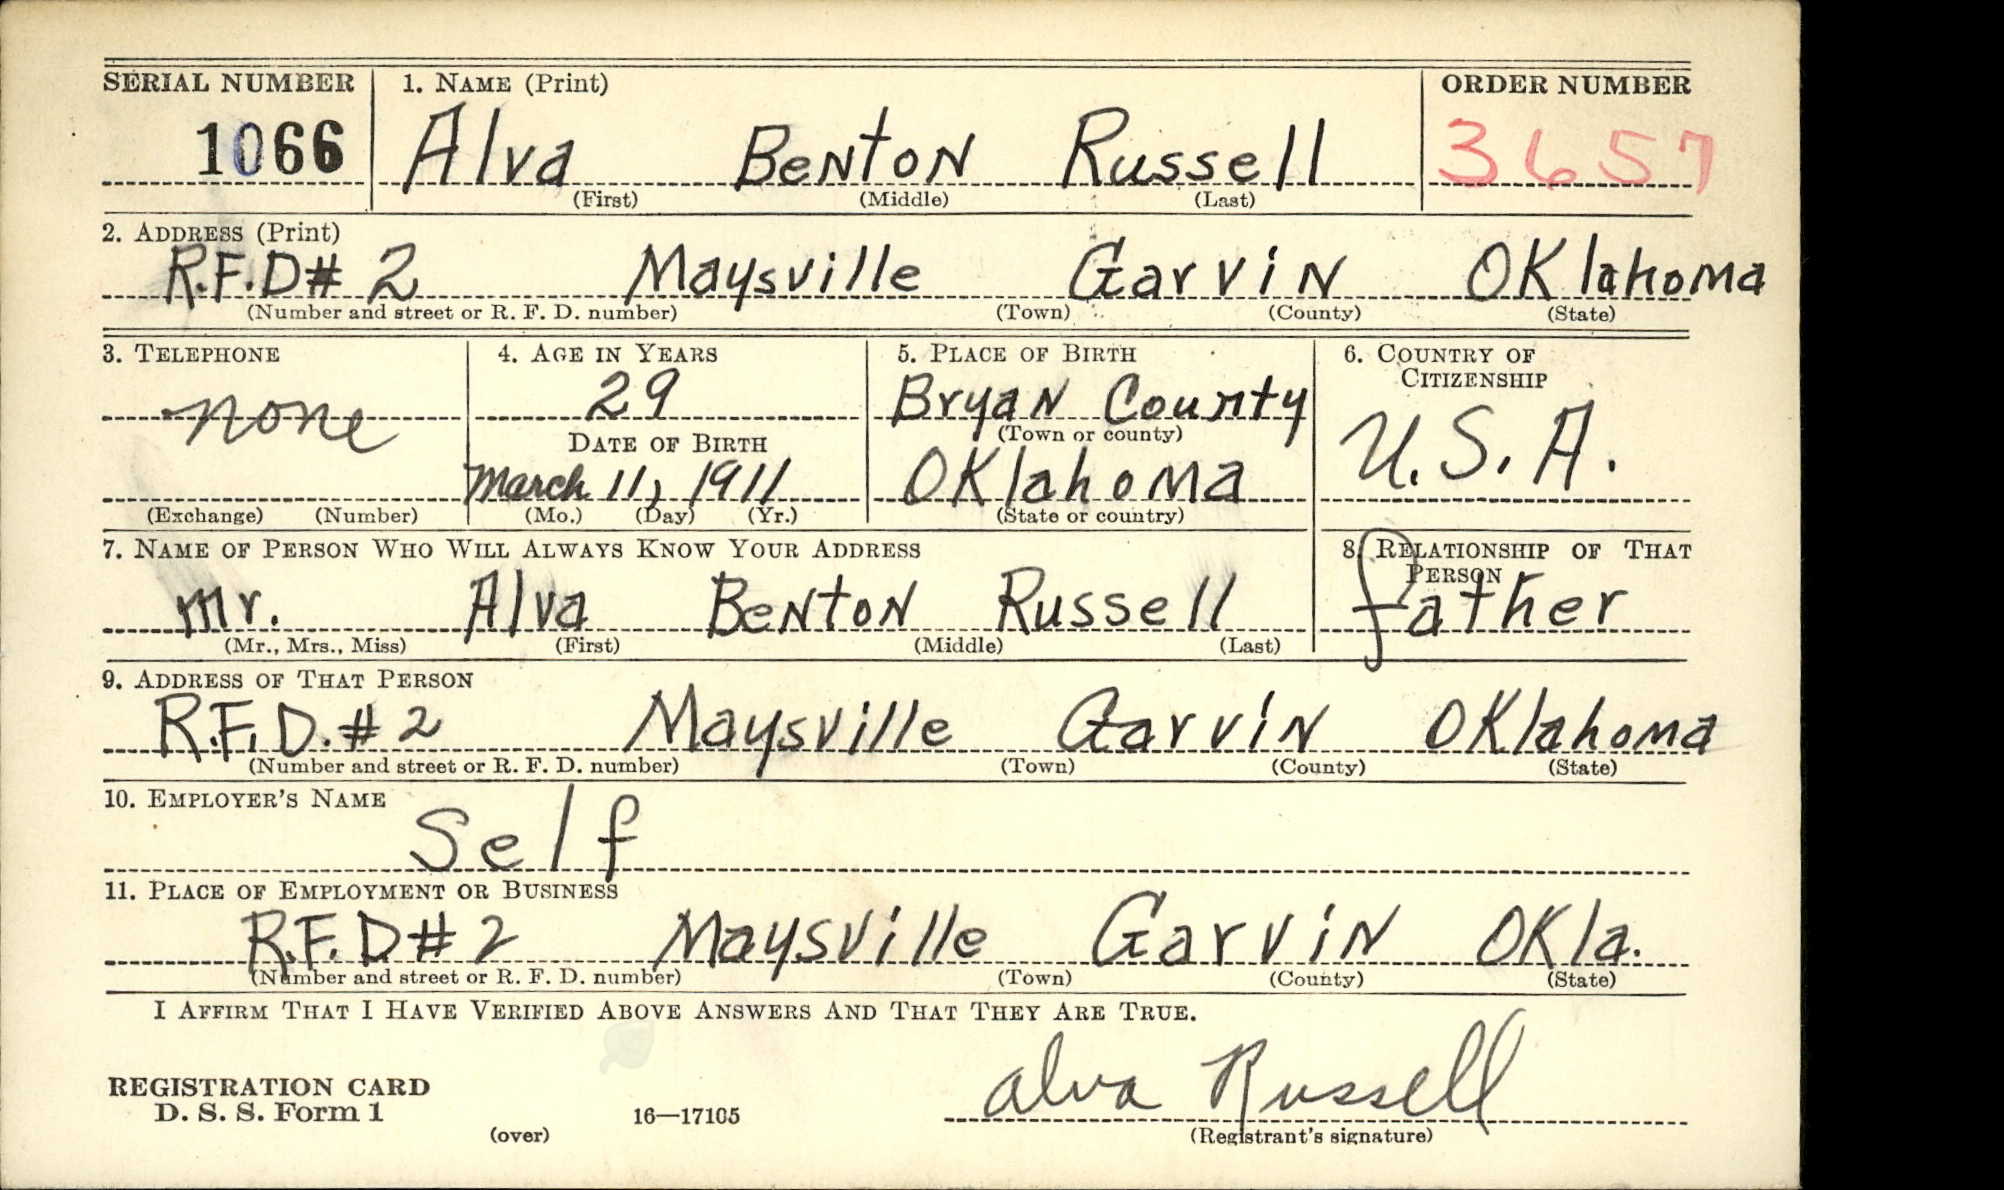 SERIAL NUMBER 1. NAME (Print) ORDER NUMBER
1066 Alva Benton Russell 3657
(First) (Middle) (Last)
2. ADDRESS (Print)
R.F.D# 2 Maysville Garvin Oklahoma
(Number and street or R. F. D. number) (Town) (County) (State)
3. TELEPHONE 4. AGE IN YEARS 5. PLACE OF BIRTH 6. COUNTRY OF CITIZENSHIP
none 29 Bryan County U.S.A.
DATE OF BIRTH (Town or county)
March 11, 1911 Oklahoma
(Exchange) (Number) (Mo.) (Day) (Yr.) (State or country)
7. NAME OF PERSON WHO WILL ALWAYS KNOW YOUR ADDRESS 8. RELATIONSHIP OF THAT PERSON
Mr. Alva Benton Russell father
(Mr., Mrs., Miss) (First) (Middle) (Last)
9. ADDRESS OF THAT PERSON
R.F.D.#2 Maysville Garvin Oklahoma
(Number and street or R. F. D. number) (Town) (County) (State)
10. EMPLOYER'S NAME
Self
11. PLACE OF EMPLOYMENT OR BUSINESS
R.F.D#2 Maysville Garvin Okla.
(Number and street or R. F. D. number) (Town) (County) (State)
I AFFIRM THAT I HAVE VERIFIED ABOVE ANSWERS AND THAT THEY ARE TRUE.
Alva Russell
REGISTRATION CARD
D. S. S. Form 1 16—17105
(over) (Registrant's signature)